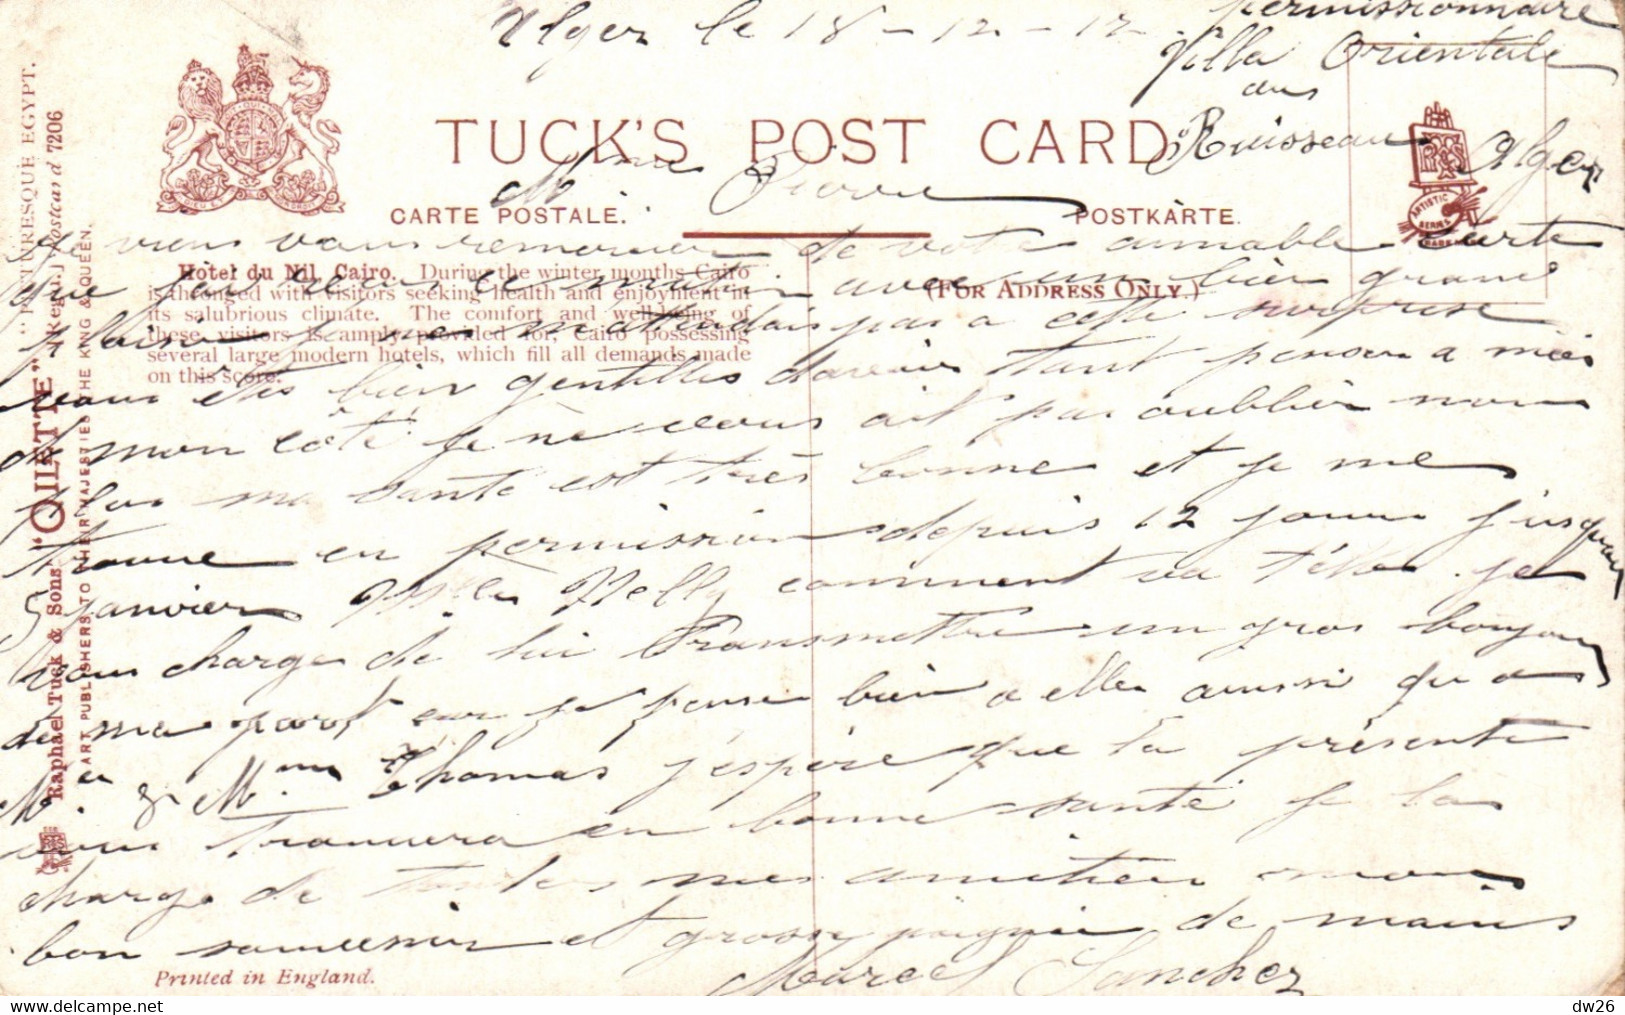 Alger le 18-12-17
Permissionnaire
Villa Orientale
au
Ruisseau Alger
TUCK'S POST CARD
CARTE POSTALE.
POSTKARTE.
(FOR ADDRESS ONLY.)
ARTISTIC SERIES
"PICTURESQUE EGYPT."
Raphael Tuck & Sons' "OILETTE" [Regd.] Postcard 7206
ART PUBLISHERS TO THEIR MAJESTIES THE KING & QUEEN.
Hotel du Nil, Cairo. During the winter months Cairo
is thronged with visitors seeking health and enjoyment in
its salubrious climate. The comfort and well-being of
these visitors is amply provided for, Cairo possessing
several large modern hotels, which fill all demands made
on this score.
Mme Pierre
Je viens vous remercier de votre aimable carte
que j'ai reçu ce matin avec un bien grand
plaisir je ne m'attendais pas a cette surprise
vous êtes bien gentilles d'avoir tant penser a moi
de mon côté je ne vous ait pas oublier non
plus ma santé est très bonne et je me
trouve en permission depuis 12 jours jusqu'au
5 janvier Mlle Nelly comment va t'elle je
vous charge de lui transmettre un gros bonjour
de ma part car je pense bien a elle aussi qu'a
Mer & Mme Thomas j'espère que la présente
vous trouvera en bonne santé je la
charge de toutes mes amitiés mon
bon souvenir et grosse poignée de mains
Marcel Sanchez
Printed in England.
dw26